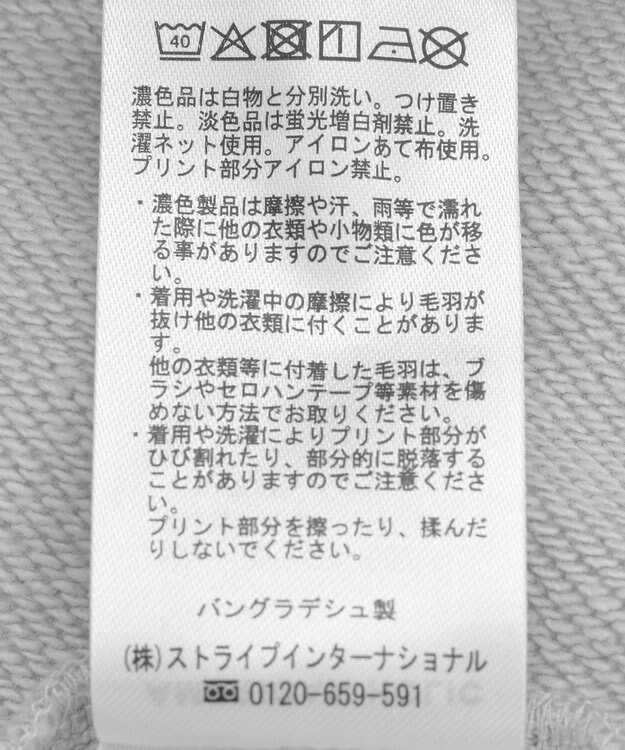 40
濃色品は白物と分別洗い。つけ置き
禁止。淡色品は蛍光増白剤禁止。洗
濯ネット使用。アイロンあて布使用。
プリント部分アイロン禁止。
・濃色製品は摩擦や汗、雨等で濡れ
た際に他の衣類や小物類に色が移
る事がありますのでご注意くださ
い。
・着用や洗濯中の摩擦により毛羽が
抜け他の衣類に付くことがありま
す。
他の衣類等に付着した毛羽は、ブ
ラシやセロハンテープ等素材を傷
めない方法でお取りください。
・着用や洗濯によりプリント部分が
ひび割れたり、部分的に脱落する
ことがありますのでご注意くださ
い。
プリント部分を擦ったり、揉んだ
りしないでください。
バングラデシュ製
(株)ストライプインターナショナル
0120-659-591